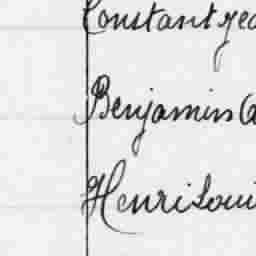 Constant
Benjamin
Henri